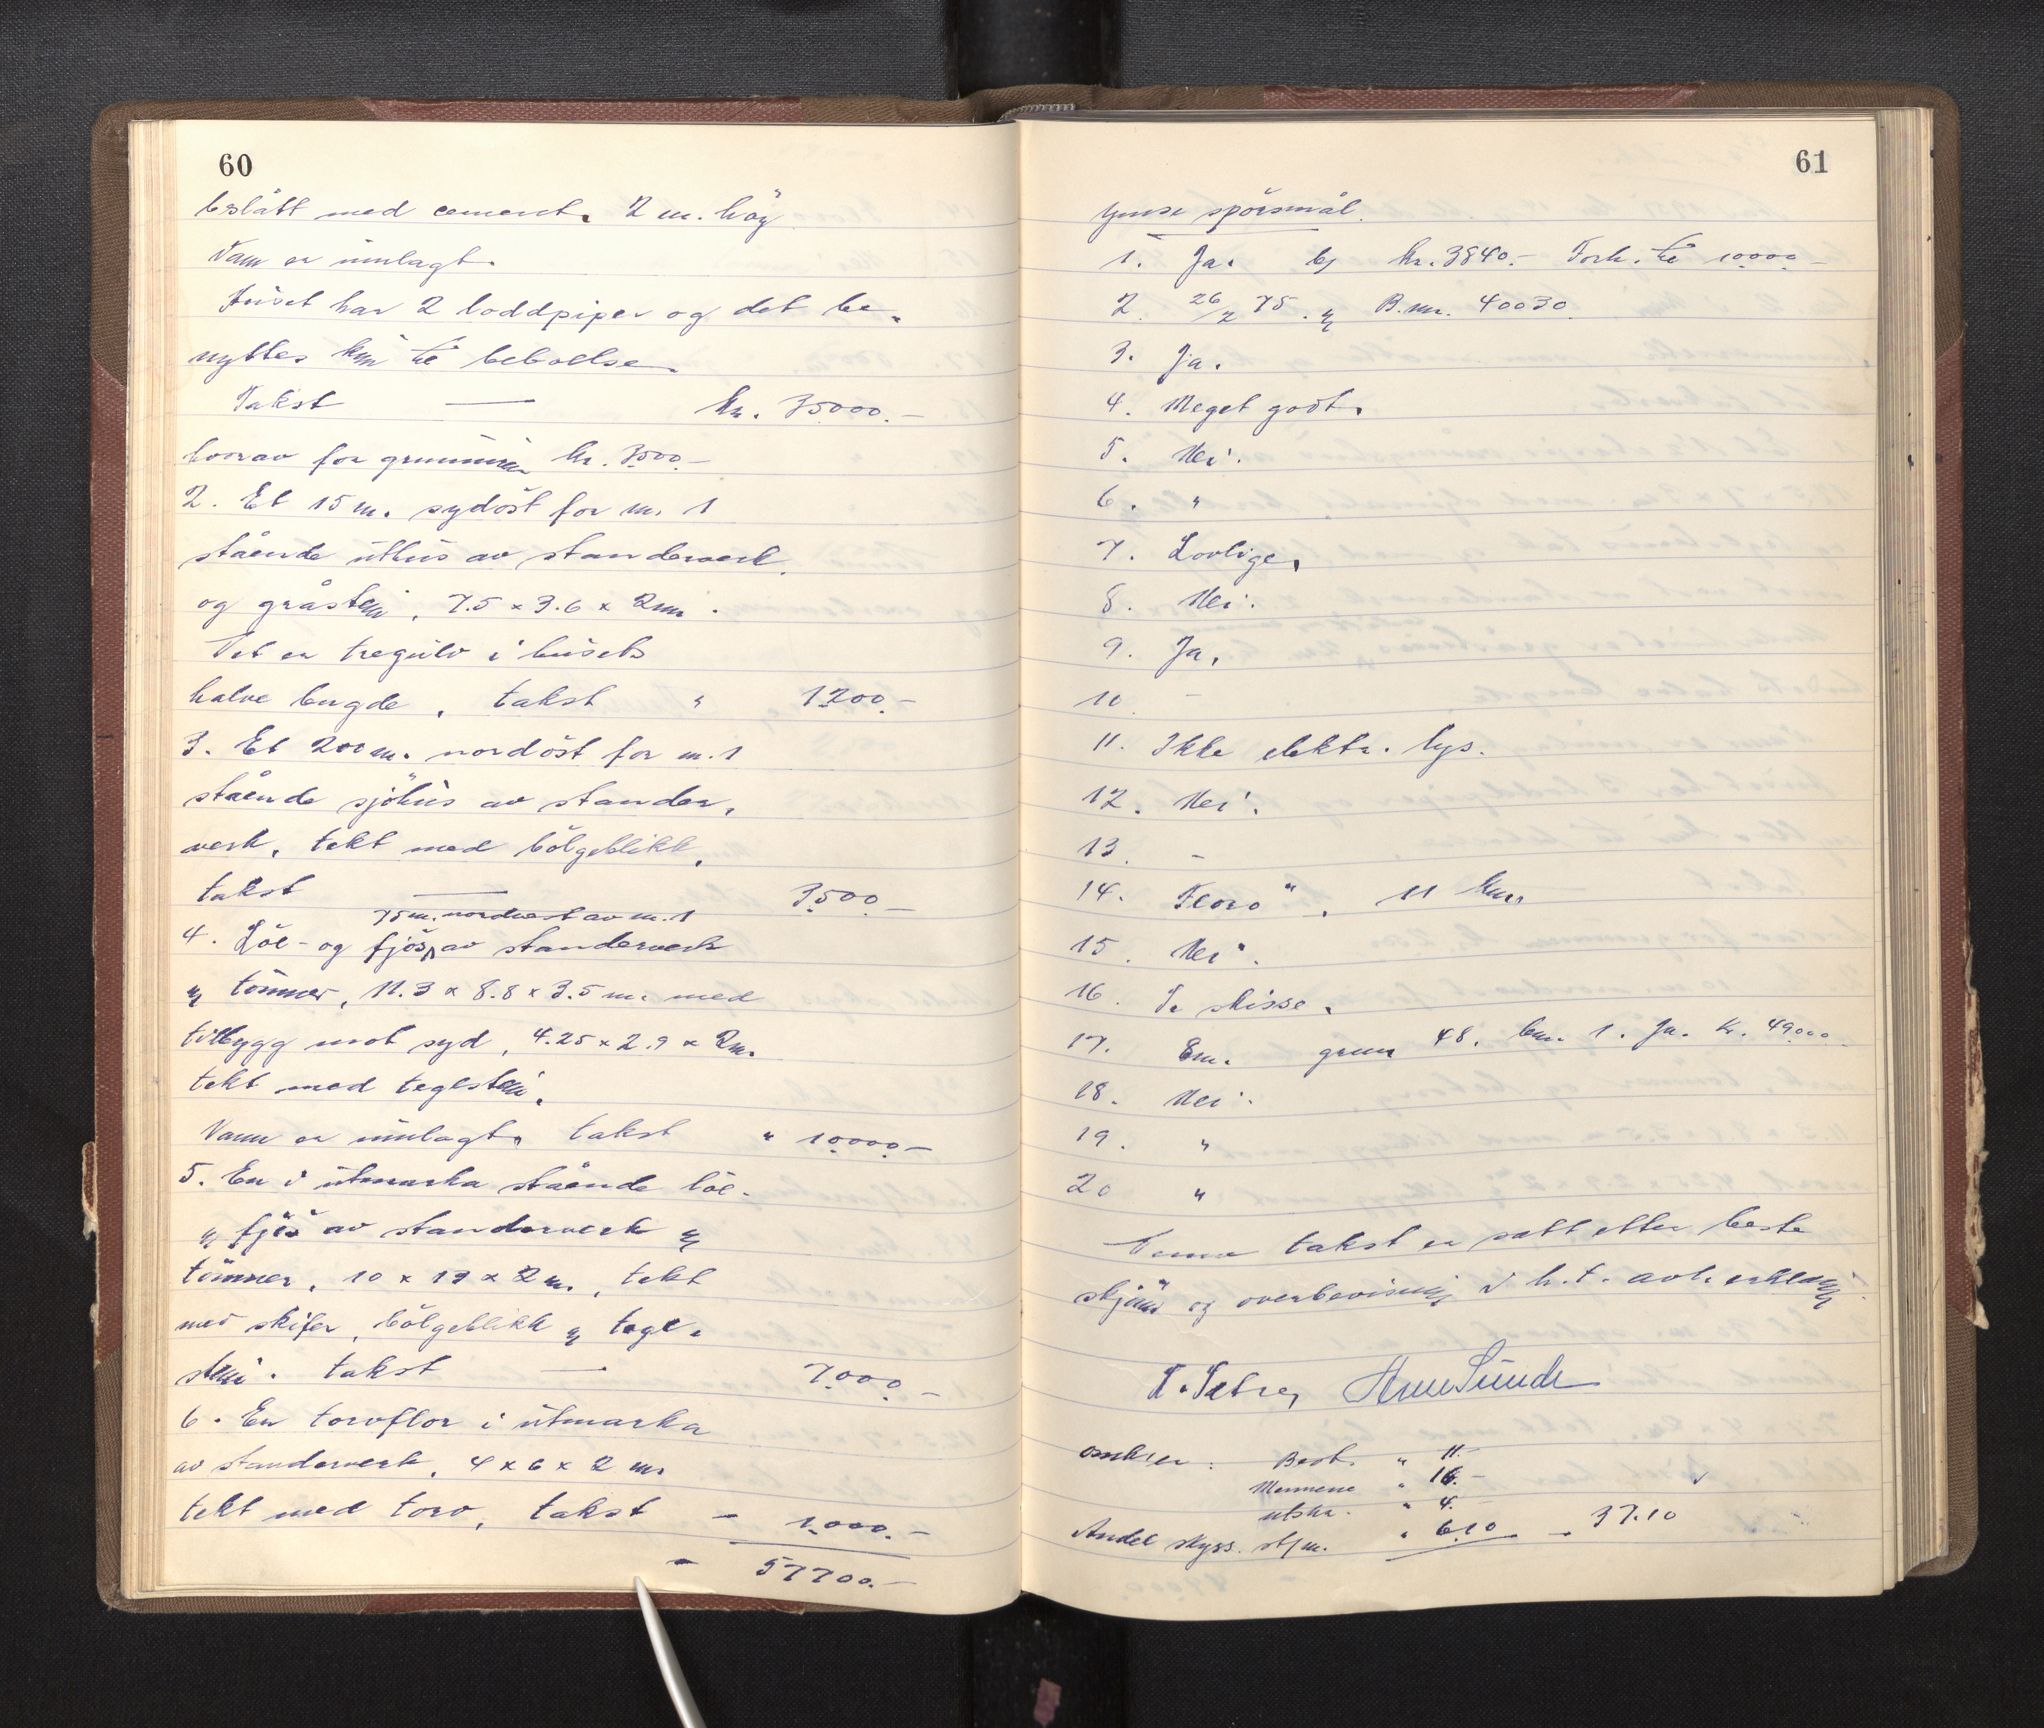 60
beslått med cement. 2 m. höy
Vann er innlagt.
Huset har 2 loddpiper og det be-
nyttes kun til beboelse.
Takst — kr. 35000.-
hvorav for grunmuren kr. 3500.-
2. Et 15 m. sydöst for m. 1
stående uthus av standerverk
og gråstein, 7.5 x 3.6 x 2 m.
Det er tregulv i husets
halve lengde, takst " 1200.-
3. Et 200 m. nordöst for m. 1
stående sjöhus av stander-
verk, tekt med bölgeblikk,
takst — 3500.-
75 m. nordvest av m. 1
4. Löe- og fjös, av standerverk
og tömmer, 11.3 x 8.8 x 3.5 m. med
tilbygg mot syd, 4.25 x 2.9 x 2 m.
tekt med teglstein.
Vann er innlagt, takst " 10000.-
5. En i utmarka stående löe-
og fjös av standerverk og
tömmer, 10 x 12 x 2 m., tekt
med skifer, bölgeblikk og tegl-
stein. takst — 7000.-
6. En torvflor i utmarka
av standerverk, 4 x 6 x 2 m.
tekt med torv, takst - 1000.-
- 57700.-
61
Ymse spörsmål.
1. Ja. kr. 3840.- Forh. til 10000.-
2. 26/2 75. og B.nr. 40030.
3. Ja.
4. Meget godt.
5. Nei.
6. "
7. Lovlige.
8. Nei.
9. Ja.
10. -
11. Ikke elektr. lys.
12. Nei.
13. -
14. Florö, 11 km.
15. Nei.
16. Se skisse.
17. Em. grnr 48. bnr. 1. Ja. Kr. 49000.-
18. Nei.
19. "
20 "
Denne takst er satt etter beste
skjönn og overbevisning i h.t. avl. erklæring.
Arne Sunde
Best. " 11.-
Mennene " 16.-
utskr. " 4.-
Andel skyss. " 6.10 - 37.10